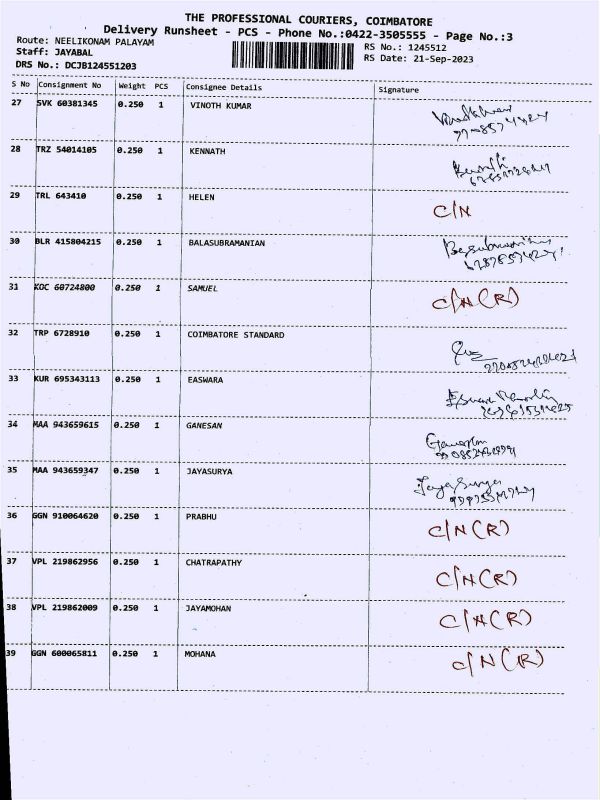 THE PROFESSIONAL COURIERS, COIMBATORE
Delivery Runsheet - PCS - Phone No.:0422-3505555 - Page No.:3
Route: NEELIKONAM PALAYAM
RS No.: 1245512
Staff: JAYABAL
RS Date: 21-Sep-2023
DRS No.: DCJB124551203
S No Consignment No Weight PCS Consignee Details Signature
27 SVK 60381345 0.250 1 VINOTH KUMAR
28 TRZ 54014105 0.250 1 KENNATH
29 TRL 643410 0.250 1 HELEN C/N
30 BLR 415804215 0.250 1 BALASUBRAMANIAN
31 KOC 60724800 0.250 1 SAMUEL C/N(R)
32 TRP 6728910 0.250 1 COIMBATORE STANDARD
33 KUR 695343113 0.250 1 EASWARA
34 MAA 943659615 0.250 1 GANESAN
35 MAA 943659347 0.250 1 JAYASURYA JayaSurya
36 GGN 910064620 0.250 1 PRABHU C/N(R)
37 VPL 219862956 0.250 1 CHATRAPATHY C/N(R)
38 VPL 219862009 0.250 1 JAYAMOHAN C/N(R)
39 GGN 600065811 0.250 1 MOHANA C/N(R)